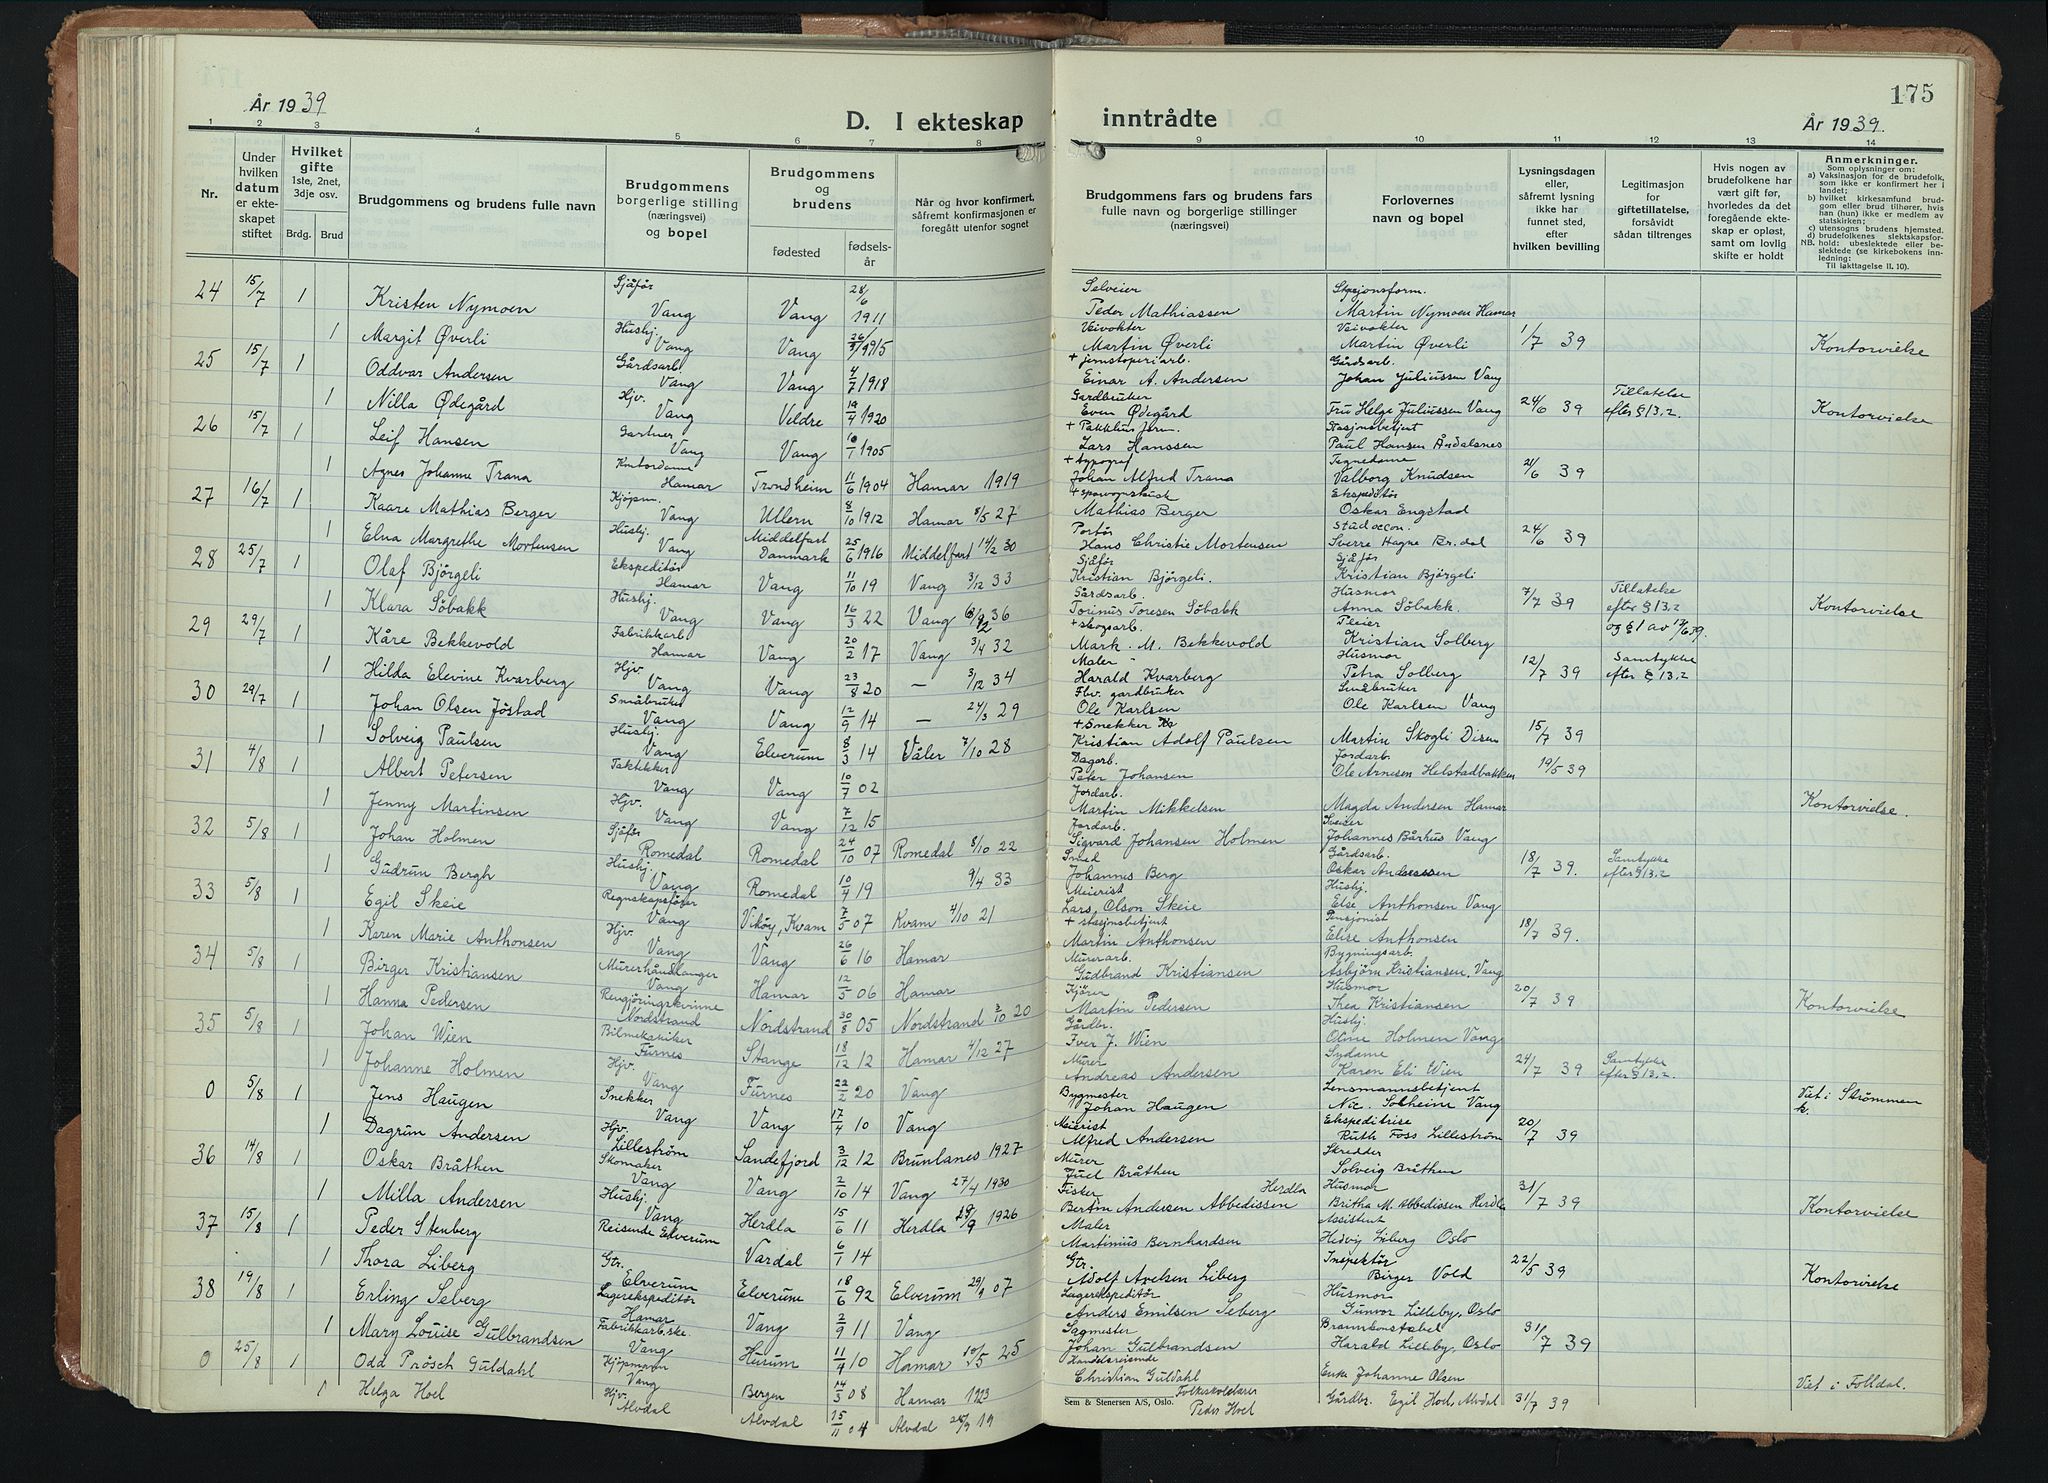 175
År 1939
D. I ekteskap inntrådte
År 1939.
1 2 3 4 5 6 7 8 9 10 11 12 13 14
Nr.
Under hvilken datum er ekteskapet stiftet
Hvilket gifte 1ste, 2net, 3dje osv.
Brdg. Brud
Brudgommens og brudens fulle navn
Brudgommens borgerlige stilling (næringsvei) og bopel
Brudgommens og brudens
fødested fødselsår
Når og hvor konfirmert, såfremt konfirmasjonen er foregått utenfor sognet
Brudgommens fars og brudens fars fulle navn og borgerlige stillinger (næringsvei)
Forlovernes navn og bopel
Lysningsdagen eller, såfremt lysning ikke har funnet sted, efter hvilken bevilling
Legitimasjon for giftetillatelse, forsåvidt sådan tiltrenges
Hvis nogen av brudefolkene har vært gift før, hvorledes da det foregående ekteskap er opløst, samt om lovlig skifte er holdt
Anmerkninger.
Som oplysninger om:
a) Vaksinasjon for de brudefolk, som ikke er konfirmert her i landet;
b) hvilket kirkesamfund brudgom eller brud tilhører, hvis han (hun) ikke er medlem av statskirken;
c) utensogns brudens hjemsted.
d) brudefolkenes slektskapsforhold: ubeslektede eller beslektede (se kirkebokens innledning:
NB.
Til iakttagelse II. 10).
24 15/7 1 Kristen Nymoen Sjåfør Vang Vang 28/6 1911 Selveier Peder Mathiassen Martin Nymoen Hamar
1 Margit Øverli Hushj. Vang Vang 1915 Veivokter Martin Øverli Veivokter Martin Øverli 1/7 39 Kontorvielse
25 15/7 1 Oddvar Andersen Gårdsarb. Vang Vang 4/7 1918 Einar A. Andersen Gårdsarb. Johan Juliussen Vang
1 Nilla Ødegård Hjv. Vang Veldre 19/4 1920 Gardbruker Even Ødegård Fru Helge Juliussen Vang 24/6 39 Tillatelse efter § 13,2. Kontorvielse
26 15/7 1 Leif Hansen Gartner Vang Vang 1905 Lars Hanssen Stasjonsbetjent Paul Hansen Åndalsnes
1 Agnes Johanne Trana Kontordame Hamar Trondheim 11/6 1904 Hamar 1919 + typograf Johan Alfred Trana Tegnedame Valborg Knudsen 21/6 39
27 16/7 1 Kaare Mathias Berger Kjøpm. Vang Ullern 8/10 1912 Hamar 8/5 27 Mathias Berger Ekspeditør Oskar Engstad
1 Elna Margrethe Mortensen Hushj. Vang Middelfart Danmark 25/6 1916 Middelfart 14/2 30 Portør Hans Christie Mortensen Stud. occon. Sverre Hagne 24/6 39
28 25/7 1 Olaf Bjørgeli Ekspeditør Hamar Vang 11/10 19 Vang 3/12 33 Sjåfør Kristian Bjørgeli. Sjåfør Kristian Bjørgeli
1 Klara Søbakk Hushj. Vang Vang 16/3 22 Vang 36 Gårdsarb. Torinus Toresen Søbakk Husmor Anna Søbakk. 7/7 39 Tillatelse efter § 13,2 og § 1 av Kontorvielse
29 29/7 1 Kåre Bekkevold Fabrikkarb Hamar Vang 20/2 17 Vang 3/4 32 + skogsarb. Mark. M. Bekkevold Pleier Kristian Solberg
1 Hilda Elevine Kvarberg Hjv. Vang Vang 23/8 20 — 3/12 34 Maler Harald Kvarberg Husmor Petra Solberg 12/7 39 Samtykke efter § 13,2
30 29/7 1 Johan Olsen Jøstad Småbruker Vang Vang 12/9 14 — 24/3 29 Fhv. gardbruker Ole Karlsen Småbruker Ole Karlsen Vang
1 Solveig Paulsen Hushj. Vang Elverum 8/3 14 Våler 7/10 28 + Snekker Kristian Adolf Paulsen Martin Skogli Disen 15/7 39
31 4/8 1 Albert Petersen Taktekker Vang Vang 10/7 02 Dagarb. Peter Johansen Jordarb. Ole Arnesen Helstadbakken 19/5 39
1 Jenny Martinsen Hjv. Vang Vang 7/12 15 Jordarb. Martin Mikkelsen Magda Andersen Hamar Kontorvielse.
32 5/8 1 Johan Holmen Sjåfør Romedal Romedal 24/10 07 Romedal 8/10 22 Jordarb. Sigvard Johansen Holmen Sveiser Johannes Bårhus Vang
1 Gudrun Bergh Hushj. Vang Romedal 10/4 19 9/4 33 Smed Johannes Berg Gårdsarb. Oskar Andersen 18/7 39. Samtykke efter § 13,2
33 5/8 1 Egil Skeie Regnskapsfører Vang Vikøy, Kvam 7/5 07 Kvam 4/10 21 Meierist Lars Olson Skeie Hushj. Else Anthonsen Vang
1 Karen Marie Anthonsen Hjv. Vang Vang 26/6 16 Hamar + stasjonsbetjent Martin Anthonsen Pensjonist Elise Anthonsen 18/7 39.
34 5/8 1 Birger Kristiansen Murerhåndlanger Vang Hamar 12/5 06 Hamar Murerarb. Gudbrand Kristiansen Bygningsarb. Asbjørn Kristiansen, Vang
1 Hanna Pedersen Rengjøringskvinne Nordstrand Nordstrand 30/8 05 Nordstrand 3/10 20 Kjører Martin Pedersen Husmor Thea Kristiansen 20/7 39 Kontorvielse
35 5/8 1 Johan Wien Bilmekaniker Furnes Stange 18/12 12 Hamar 4/12 27 Gårdbr. Iver J. Wien Hushj. Oline Holmen Vang
1 Johanne Holmen Hjv. Vang Furnes 22/2 20 Vang Murer Andreas Andersen Sydame Karen Eli Wien 24/7 39 Samtykke efter § 13,2.
0 5/8 1 Jens Haugen Snekker Vang Vang 17/4 10 Vang Bygmester Johan Haugen Lensmannsbetjent Nic. Solheim Vang Viet i Strømmen k.
1 Dagrun Andersen Hjv. Lillestrøm Sandefjord 3/12 12 Brunlanes 1927 Meierist Alfred Andersen Ekspeditrise Ruth Foss Lillestrøm 20/7 39
36 14/8 1 Oskar Bråthen Skomaker Vang Vang 2/10 14 Vang 27/4 1930 Murer Juel Bråthen Skredder Solveig Bråthen
1 Milla Andersen Hushj. Vang Herdla 15/6 11 Herdla 1926 Fisker Herdla Bertin Andersen Abbedissen Husmor Britha M. Abbedissen Herdla 31/7 39 Kontorvielse
37 15/8 1 Peder Stenberg Reisende Elverum Vardal 6/1 14 Maler Martinius Bernhardsen Assistent Hedvig Liberg Oslo
1 Thora Liberg Gtr. Elverum Elverum 18/6 92 Elverum 07 Gtr. Adolf Axelsen Liberg Inspektør Birger Vold 22/5 39 Kontorvielse
38 19/8 1 Erling Seberg Lagerekspeditør Hamar Vang 2/9 11 Vang Lagerekspeditør Anders Emilsen Seberg Husmor Gunvor Lilleby, Oslo
1 Mary Louise Gulbrandsen Fabrikkarb.ske. Vang Hurum 11/4 10 Hamar 10/5 25 Sagmester Johan Gulbrandsen Brannkonstabel Harald Lilleby, Oslo 31/7 39
0 25/8 1 Odd Prösch Guldahl Kjøpmann Vang Bergen 14/3 08 Hamar 1923 Handelsreisende Christian Guldahl Enke Johanne Olsen Viet i Folldal.
1 Helga Hoel Hjv. Alvdal Alvdal 15/11 04 Alvdal 19 Folkeskolelærer Peder Hoel Gårdbr. Egil Hoel, Alvdal 31/7 39
Sem & Stenersen A/S, Oslo.